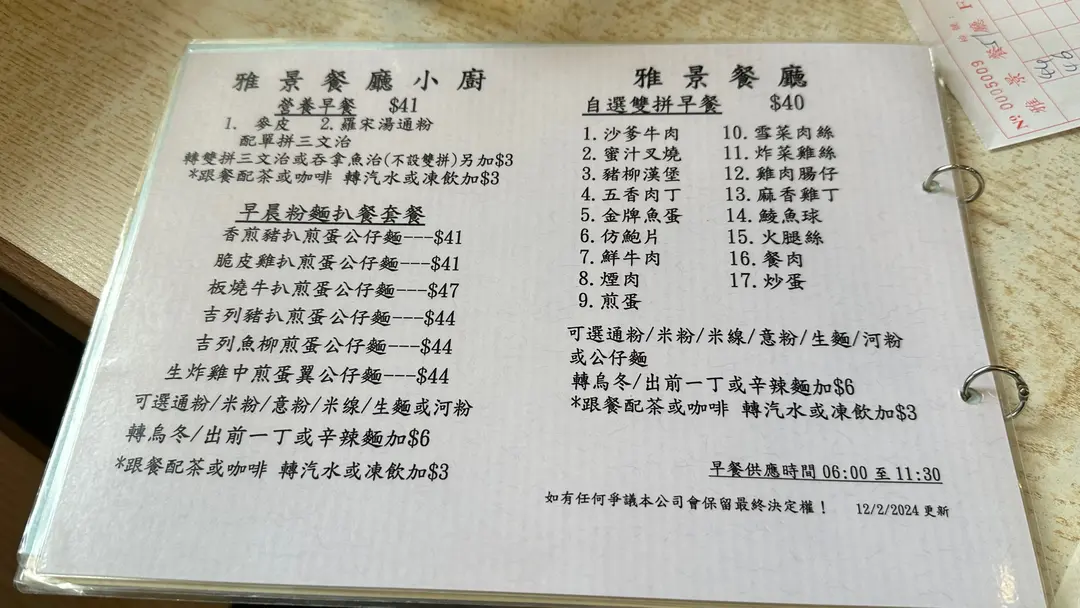 雅景餐廳小廚
營養早餐 $41
1. 麥皮 2.羅宋湯通粉
配單拼三文治
轉雙拼三文治或吞拿魚治(不設雙拼)另加$3
*跟餐配茶或咖啡 轉汽水或凍飲加$3
早晨粉麵扒餐套餐
香煎豬扒煎蛋公仔麵---$41
脆皮雞扒煎蛋公仔麵---$41
板燒牛扒煎蛋公仔麵---$47
吉列豬扒煎蛋公仔麵---$44
吉列魚柳煎蛋公仔麵---$44
生炸雞中煎蛋翼公仔麵---$44
可選通粉/米粉/意粉/米線/生麵或河粉
轉烏冬/出前一丁或辛辣麵加$6
*跟餐配茶或咖啡 轉汽水或凍飲加$3
雅景餐廳
自選雙拼早餐 $40
1.沙爹牛肉
2.蜜汁叉燒
3.豬柳漢堡
4.五香肉丁
5.金牌魚蛋
6.仿鮑片
7.鮮牛肉
8.煙肉
9.煎蛋
10.雪菜肉絲
11.炸菜雞絲
12.雞肉腸仔
13.麻香雞丁
14.鯪魚球
15.火腿絲
16.餐肉
17.炒蛋
可選通粉/米粉/米線/意粉/生麵/河粉
或公仔麵
轉烏冬/出前一丁或辛辣麵加$6
*跟餐配茶或咖啡 轉汽水或凍飲加$3
早餐供應時間 06:00 至 11:30
如有任何爭議本公司會保留最終決定權！ 12/2/2024 更新
№ 0005009
雅景餐廳